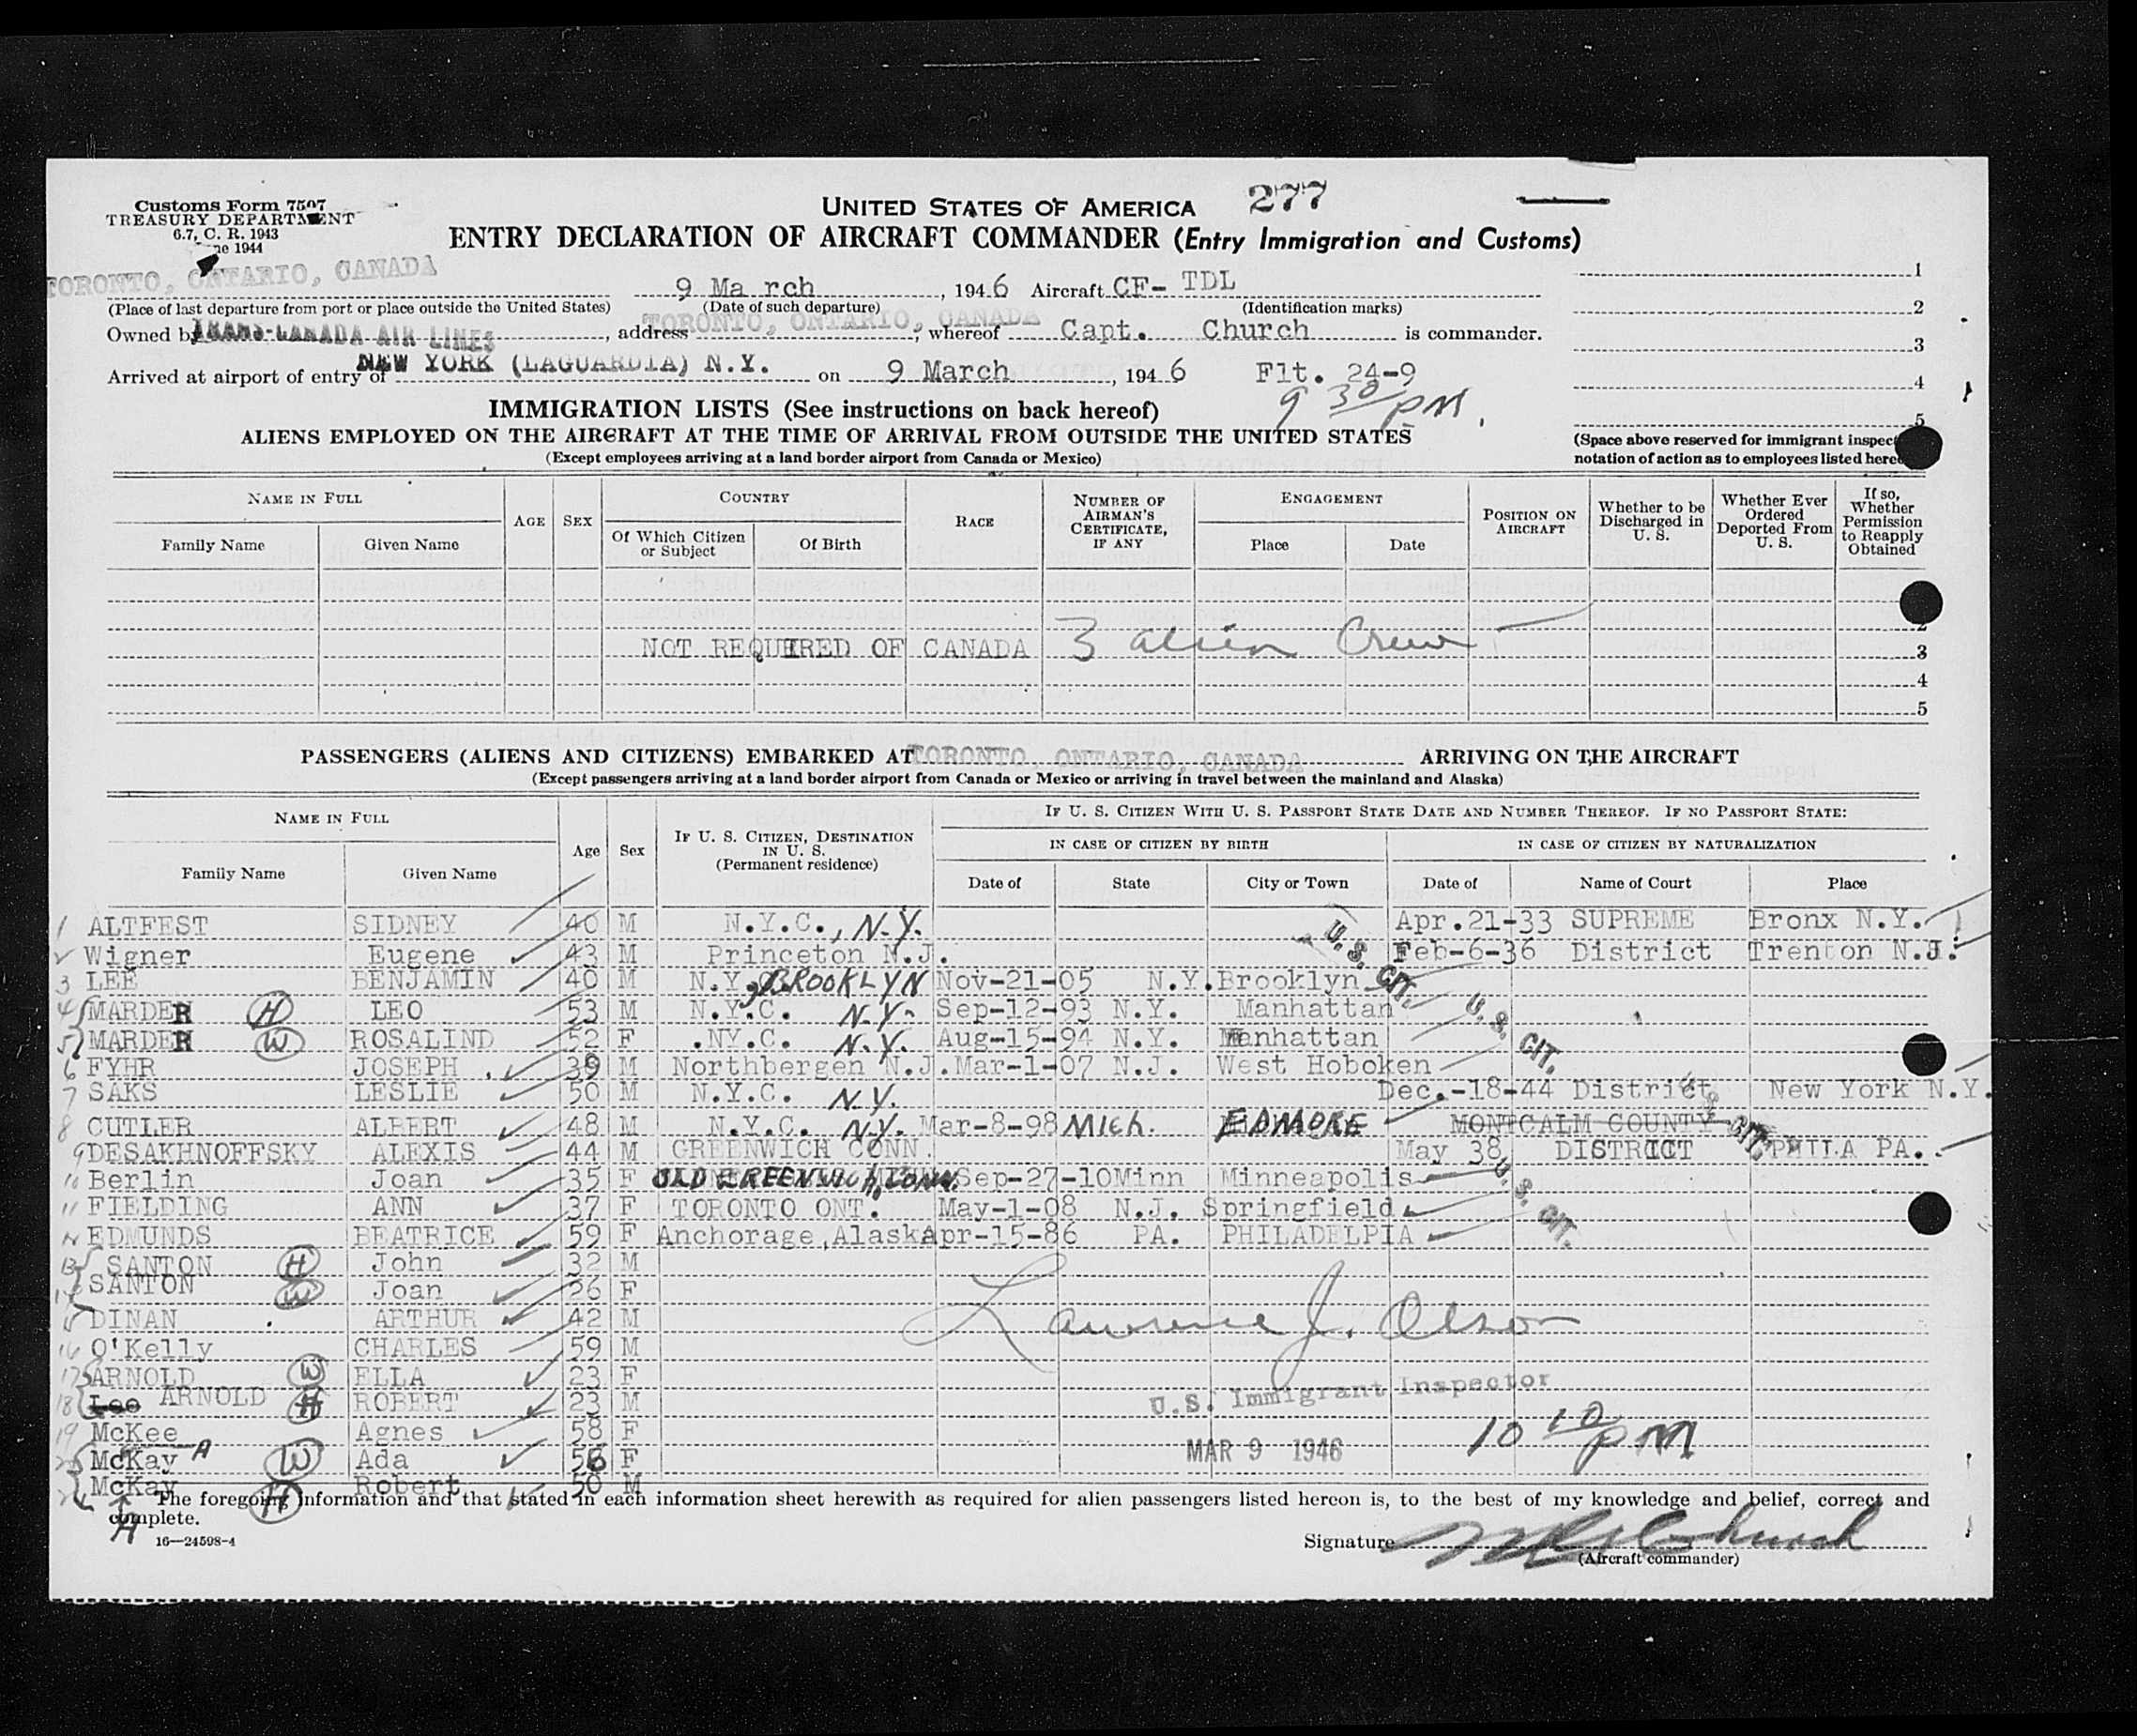 Customs Form 7507
TREASURY DEPARTMENT
6.7, C. R. 1943
ne 1944
UNITED STATES OF AMERICA 277
ENTRY DECLARATION OF AIRCRAFT COMMANDER (Entry Immigration and Customs)
TORONTO, ONTARIO, CANADA 9 Ma rch, 1946 Aircraft CF- TDL 1
(Place of last departure from port or place outside the United States) (Date of such departure) (Identification marks) 2
Owned by TRANS-CANADA AIR LINES, address TORONTO, ONTARIO, CANADA, whereof Capt. Church is commander. 3
Arrived at airport of entry of NEW YORK (LAGUARDIA) N.Y. on 9 March, 1946 Flt. 24-9 4
9 30 PM 5
IMMIGRATION LISTS (See instructions on back hereof)
ALIENS EMPLOYED ON THE AIRCRAFT AT THE TIME OF ARRIVAL FROM OUTSIDE THE UNITED STATES
(Except employees arriving at a land border airport from Canada or Mexico)
(Space above reserved for immigrant inspec
notation of action as to employees listed here
NAME IN FULL AGE SEX COUNTRY RACE NUMBER OF AIRMAN'S CERTIFICATE, IF ANY ENGAGEMENT POSITION ON AIRCRAFT Whether to be Discharged in U. S. Whether Ever Ordered Deported From U. S. If so, Whether Permission to Reapply Obtained
Family Name Given Name Of Which Citizen or Subject Of Birth Place Date
2
NOT REQUIRED OF CANADA 3 alien Crew 3
4
5
PASSENGERS (ALIENS AND CITIZENS) EMBARKED AT TORONTO, ONTARIO, CANADA ARRIVING ON THE AIRCRAFT
(Except passengers arriving at a land border airport from Canada or Mexico or arriving in travel between the mainland and Alaska)
NAME IN FULL Age Sex IF U. S. CITIZEN, DESTINATION IN U. S. (Permanent residence) IF U. S. CITIZEN WITH U. S. PASSPORT STATE DATE AND NUMBER THEREOF. IF NO PASSPORT STATE:
IN CASE OF CITIZEN BY BIRTH IN CASE OF CITIZEN BY NATURALIZATION
Family Name Given Name Date of State City or Town Date of Name of Court Place
1 ALTFEST SIDNEY 40 M N.Y.C., N.Y. Apr.21-33 SUPREME Bronx N.Y.
Wigner Eugene 43 M Princeton N.J. U. S. CIT. Feb-6-36 District Trenton N.J.
3 LEE BENJAMIN 40 M N.Y. BROOKLYN Nov-21-05 N.Y. Brooklyn
4 MARDER H LEO 53 M N.Y.C. N.Y. Sep-12-93 N.Y. Manhattan U. S. CIT.
5 MARDER W ROSALIND 52 F .NY.C. N.Y. Aug-15-94 N.Y. Manhattan
6 FYHR JOSEPH 39 M Northbergen N.J. Mar-1-07 N.J. West Hoboken
7 SAKS LESLIE 50 M N.Y.C. N.Y. Dec.-18-44 District New York N.Y.
8 CUTLER ALBERT 48 M N.Y.C. N.Y. Mar-8-98 Mich. EDMORE MONTCALM COUNTY U. S. CIT.
9 DESAKHNOFFSKY ALEXIS 44 M GREENWICH CONN. May 38 DISTRICT PHILA PA.
10 Berlin Joan 35 F OLD GREENWICH, CONN. Sep-27-10 Minn Minneapolis U. S. CIT.
11 FIELDING ANN 37 F TORONTO ONT. May-1-08 N.J. Springfield
EDMUNDS BEATRICE 59 F Anchorage,Alaska Apr-15-86 PA. PHILADELPIA
13 SANTON H John 32 M
14 SANTON W Joan 26 F
DINAN ARTHUR 42 M
16 O'Kelly CHARLES 59 M
Lawrence J. Olson
17 ARNOLD W ELLA 23 F
18 Lee ARNOLD H ROBERT 23 M
U.S. Immigrant Inspector
19 McKee Agnes 58 F
10 10 PM
McKay A W Ada 56 F
MAR 9 1946
McKay H Robert 50 M
The foregoing information and that stated in each information sheet herewith as required for alien passengers listed hereon is, to the best of my knowledge and belief, correct and
complete.
A
16—24598-4
Signature Church
(Aircraft commander)